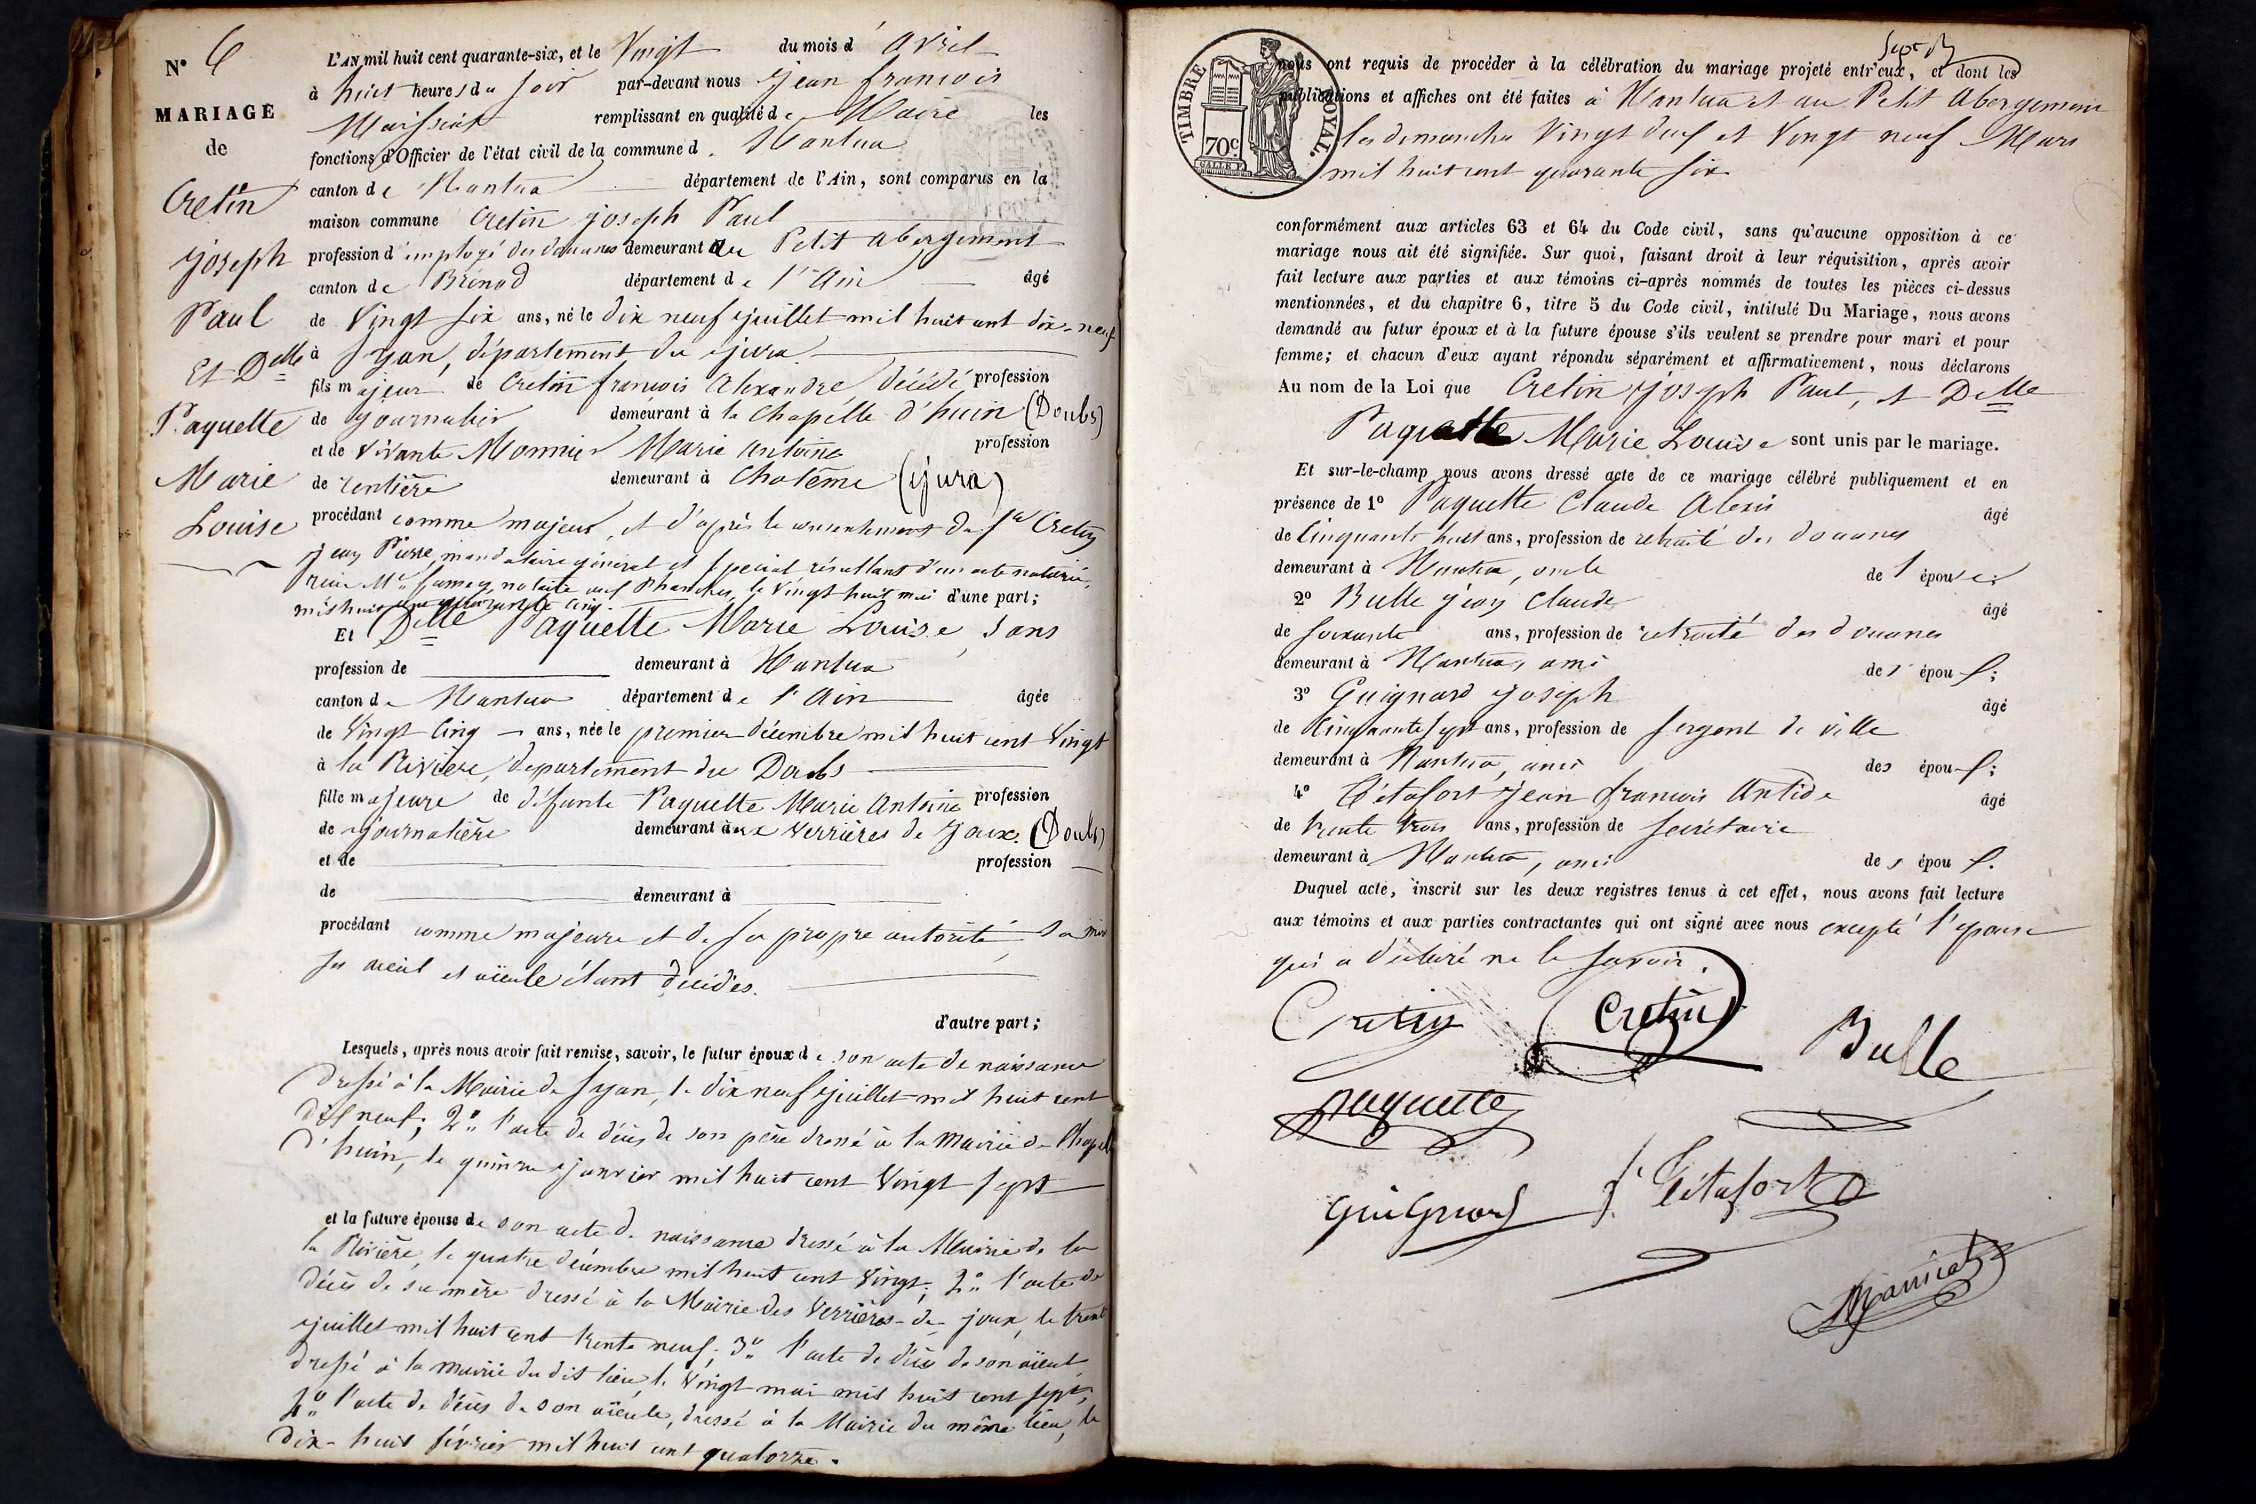 N° 6
MARIAGE
de
Cretin
Joseph
Paul
Et Delle
Paquette
Marie
Louise
L'AN mil huit cent quarante-six, et le Vingt du mois d'Avril
à huit heures du soir par-devant nous Jean françois
remplissant en qualité de Maire les
fonctions d'Officier de l'état civil de la commune de Nantua
canton de Nantua département de l'Ain, sont comparus en la
maison commune Cretin joseph Paul
profession d'employé des douanes demeurant au Petit abergement
canton de Brénod département de l'Ain âgé
de Vingt six ans, né le dix neuf juillet mil huit cent dix-neuf
à Syan, département du jura
fils majeur de Cretin françois Alexandre décédé profession
de journalier demeurant à la Chapelle d'huin (Doubs)
et de vivante Monnier Marie Antoine profession
de rentière demeurant à Chatême (jura)
procédant comme majeur, et d'après le consentement du Sr Cretin
jean Pierre, mandataire général et spécial résultant d'un acte notarié,
notaire aux Planches, le Vingt huit mai d'une part;
mil huit cent quarante cinq.
Et Delle Paquette Marie Louise, sans
profession de demeurant à Nantua
canton de Nantua département de l'Ain âgée
de Vingt Cinq ans, née le premier décembre mil huit cent Vingt
à la Rivière, département du Doubs
fille majeure de défunte Paquette Marie Antoine profession
de journalière demeurant aux Verrières de Joux. (Doubs)
et de profession
de demeurant à
procédant comme majeure et de sa propre autorité, sa mère
ses aieul et aïeule étant décédés.
d'autre part;
Lesquels, après nous avoir fait remise, savoir, le futur époux de son acte de naissance
dressé à la Mairie de Syan, le dix neuf juillet mil huit cent
dix neuf; 2° l'acte de décès de son père dressé à la Mairie de Chapelle
d'huin, le quinze janvier mil huit cent Vingt sept
et la future épouse de son acte de naissance dressé à la Mairie de la
la Rivière, le quatre décembre mil huit cent Vingt; 2° l'acte de
décès de sa mère dressé à la Mairie des Verrières-de-joux, le trente
juillet mil huit cent trente neuf; 3° l'acte de décès de son aïeul,
dressé à la mairie du dit lieu, le Vingt mai mil huit cent sept;
4° l'acte de décès de son aïeule, dressé à la Mairie du même lieu, le
dix-huit février mil huit cent quatorze.
TIMBRE ROYAL.
70c.
nous ont requis de procéder à la célébration du mariage projeté entr'eux, et dont les
publications et affiches ont été faites à Nantua et au Petit Abergement
les dimanches Vingt deux et Vingt neuf Mars
mil huit cent quarante six
conformément aux articles 63 et 64 du Code civil, sans qu'aucune opposition à ce
mariage nous ait été signifiée. Sur quoi, faisant droit à leur réquisition, après avoir
fait lecture aux parties et aux témoins ci-après nommés de toutes les pièces ci-dessus
mentionnées, et du chapitre 6, titre 5 du Code civil, intitulé Du Mariage, nous avons
demandé au futur époux et à la future épouse s'ils veulent se prendre pour mari et pour
femme; et chacun d'eux ayant répondu séparément et affirmativement, nous déclarons
Au nom de la Loi que Cretin joseph Paul, et Delle
Paquette Marie Louise sont unis par le mariage.
Et sur-le-champ nous avons dressé acte de ce mariage célébré publiquement et en
présence de 1° Paquette Claude Alexis âgé
de Cinquante huit ans, profession de retraité des douanes
demeurant à Nantua, oncle de l'épouse;
2° Bulle jean Claude âgé
de soixante ans, profession de retraité des douanes
demeurant à Nantua, ami des époux;
3° Guignard joseph âgé
de Cinquante sept ans, profession de sergent de ville
demeurant à Nantua, ami des époux;
4° Tétafort jean françois Antide âgé
de trente trois ans, profession de secrétaire
demeurant à Nantua, ami des époux.
Duquel acte, inscrit sur les deux registres tenus à cet effet, nous avons fait lecture
aux témoins et aux parties contractantes qui ont signé avec nous excepté l'épouse
qui a déclaré ne le savoir.
Cretin Cretin Bulle
paquette
Guignard Tétafort